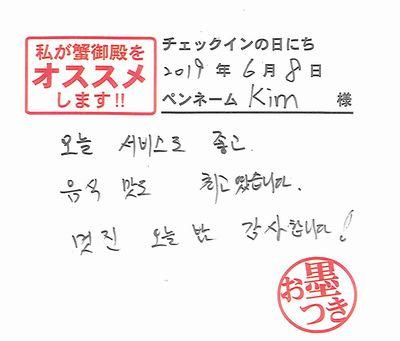 私が蟹御殿を
オススメ
します!!
チェックインの日にち
2019 年 6月 8日
ペンネーム Kim 様
오늘 서비스도 좋고
음식 맛도 최고였습니다.
멋진 오늘 밤 감사합니다!
お墨
つき